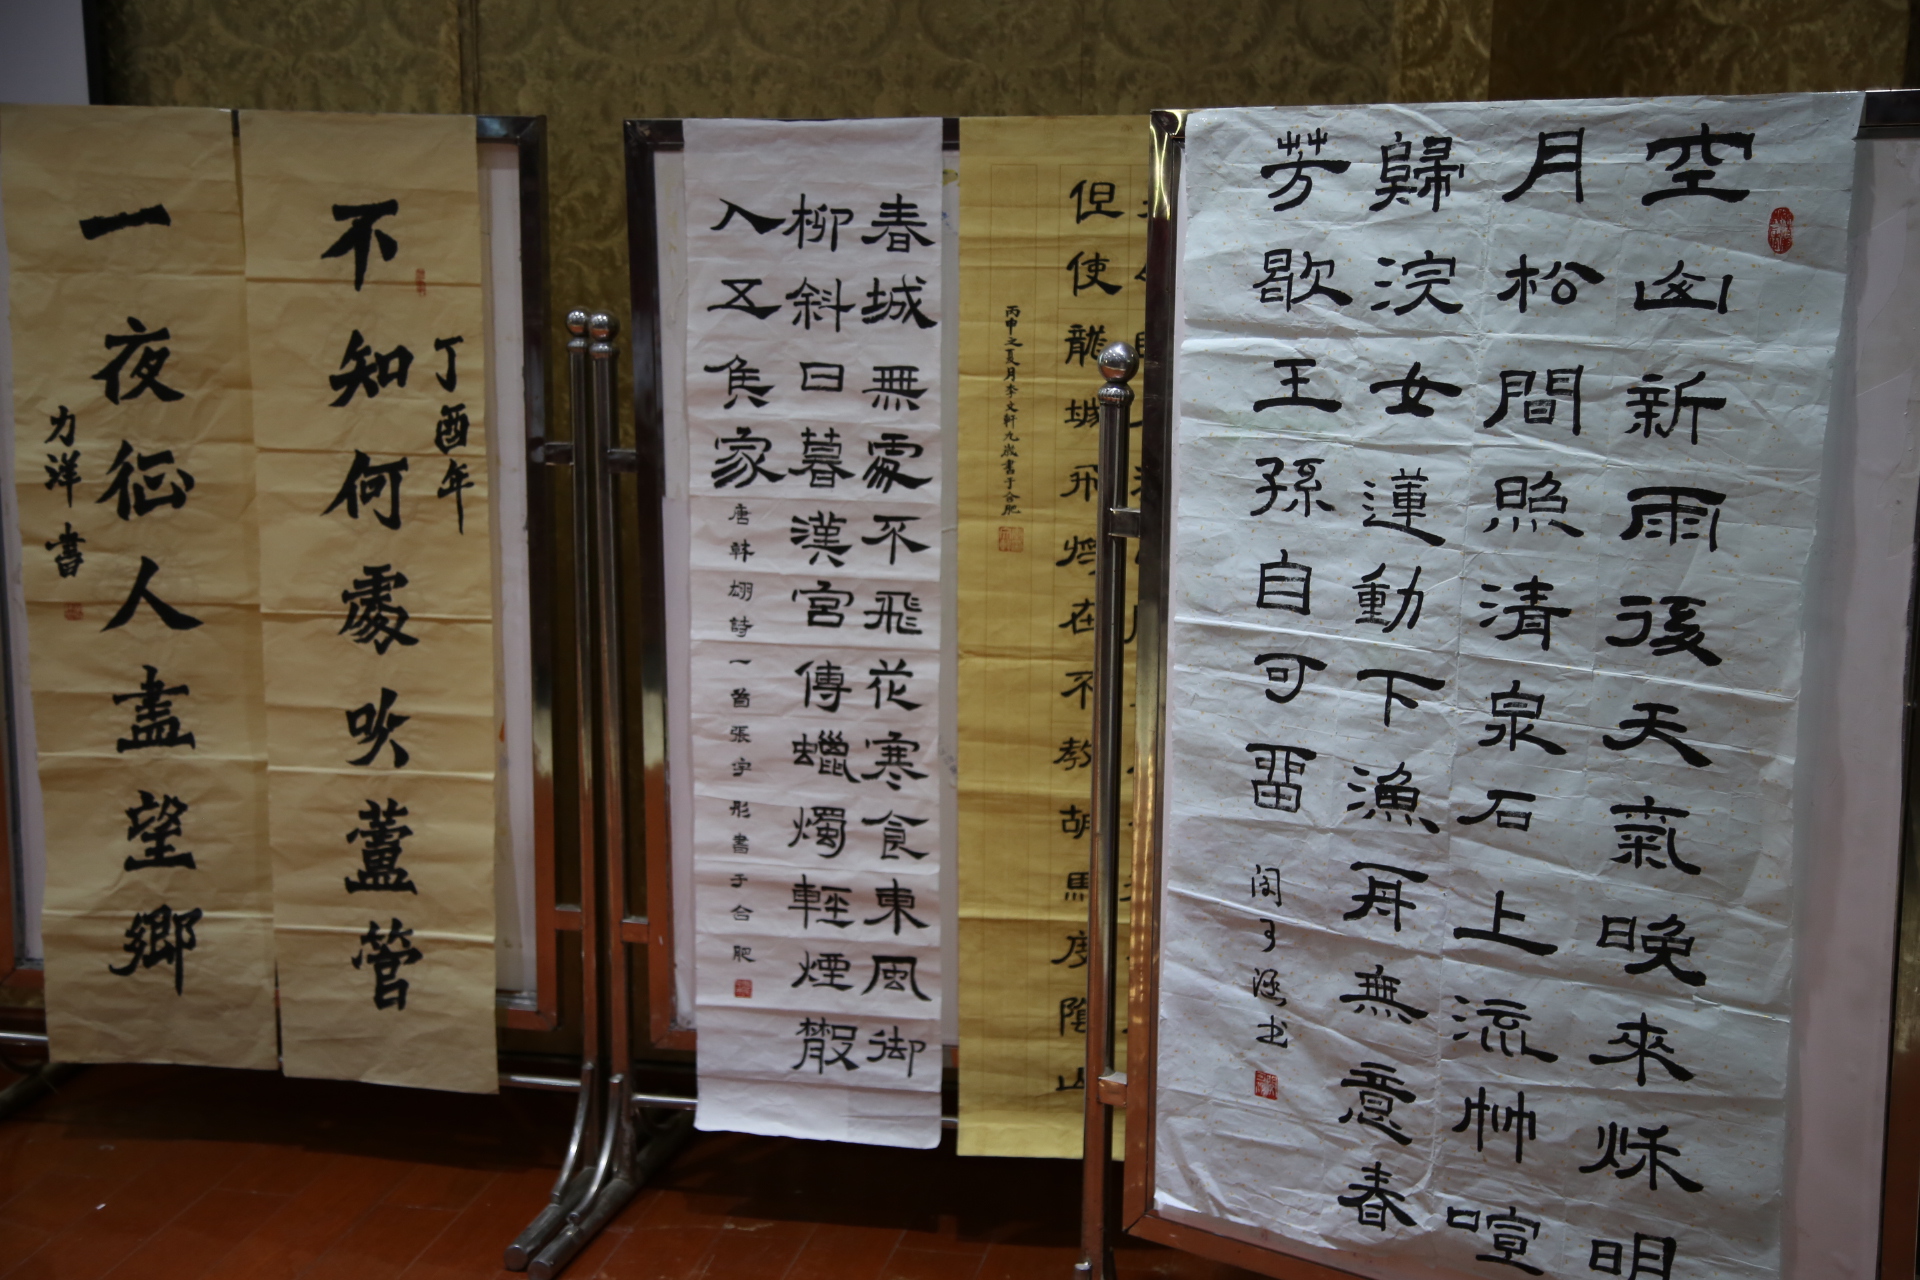 空山新雨後天氣晚來秋明
月松間照清泉石上流竹喧
歸浣女蓮動下漁舟無意春
芳歇王孫自可留
子涵书
但使龍城飛將在不教胡馬度陰山
丙申之夏月李文軒九歲書于合肥
春城無處不飛花寒食東風御
柳斜日暮漢宮傳蠟燭輕煙散
入五侯家
唐韓翃詩一首張宇彤書于合肥
丁酉年
不知何處吹蘆管
一夜征人盡望鄉
力洋書